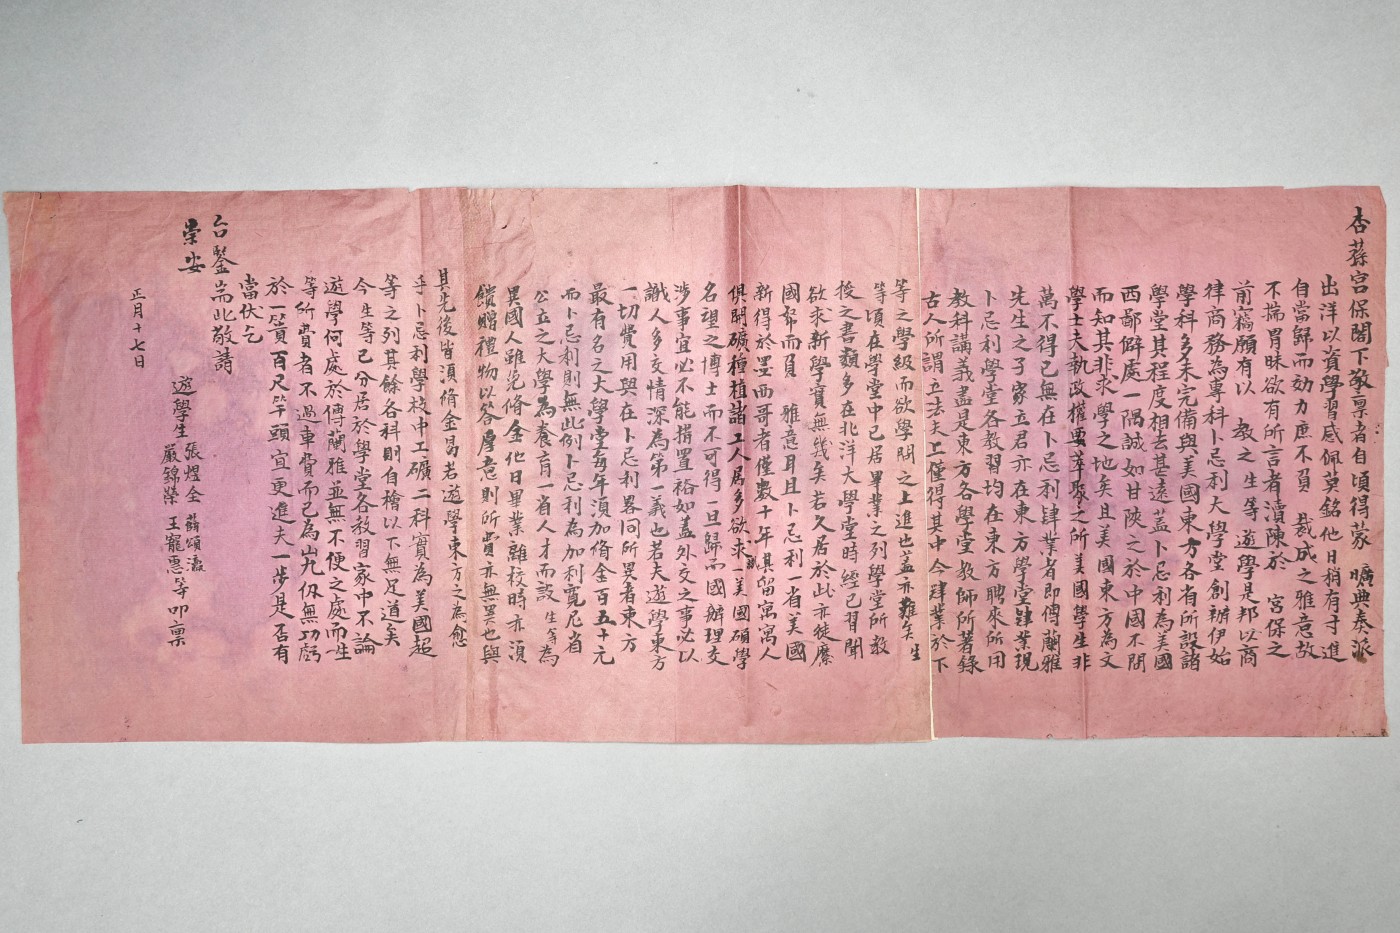 杏蓀宮保閣下敬稟者自頃得蒙 曠典奏派
出洋以資學習感佩莫銘他日稍有寸進
自當歸而効力庶不負 裁成之雅意故
不揣冒昧欲有所言者瀆陳於 宮保之
前竊願有以 教之生等遊學是邦以商
律商務為專科卜忌利大學堂創辦伊始
學科多未完備與美國東方各省所設諸
學堂其程度相去甚遠蓋卜忌利為美國
西鄙僻處一隅誠如甘陝之於中國不問
而知其非求學之地矣且美國東方為文
學士夫執政權要萃聚之所美國學生非
萬不得已無在卜忌利肄業者即傅蘭雅
先生之子家立君亦在東方學堂肄業現
卜忌利學堂各教習均在東方聘來所用
教科講義盡是東方各學堂教師所著錄
古人所謂立法夫上僅得其中今肄業於下
等之學級而欲學問之上進也蓋亦難矣生
等頃在學堂中已居畢業之列學堂所教
授之書類多在北洋大學堂時經已習聞
欲求新學實無幾矣若久居於此亦徒縻
國帑而負 雅意耳且卜忌利一省美國
新得於墨西哥者僅數十年其留寓寓人
俱開礦種植諸工人居多欲求一美國碩學
名望之博士而不可得一旦歸而國辦理交
涉事宜必不能措置裕如蓋外交之事必以
識人多交情深為第一義也若夫遊學東方
一切費用與在卜忌利畧同所異者東方
最有名之大學堂每年須加脩金百五十元
而卜忌利則無此例卜忌利為加利寬尼省
公立之大學為養育一省人才而設生等為
異國人雖免脩金他日畢業離校時亦須
饋贈禮物以答厚意則所費亦無異也與
其先後皆須脩金曷若遊學東方之為愈
乎卜忌利學校中工礦二科實為美國超
等之列其餘各科則自檜以下無足道矣
今生等已分居於學堂各教習家中不論
遊學何處於傅蘭雅並無不便之處而生
等所費者不過車費而已為山九仭無功虧
於一簣百尺竿頭宜更進夫一步是否有
當伏乞
台鑒耑此敬請
崇安
遊學生 張煜全 嚴錦榮 薛頌瀛 王寵惠 等叩稟
正月十七日